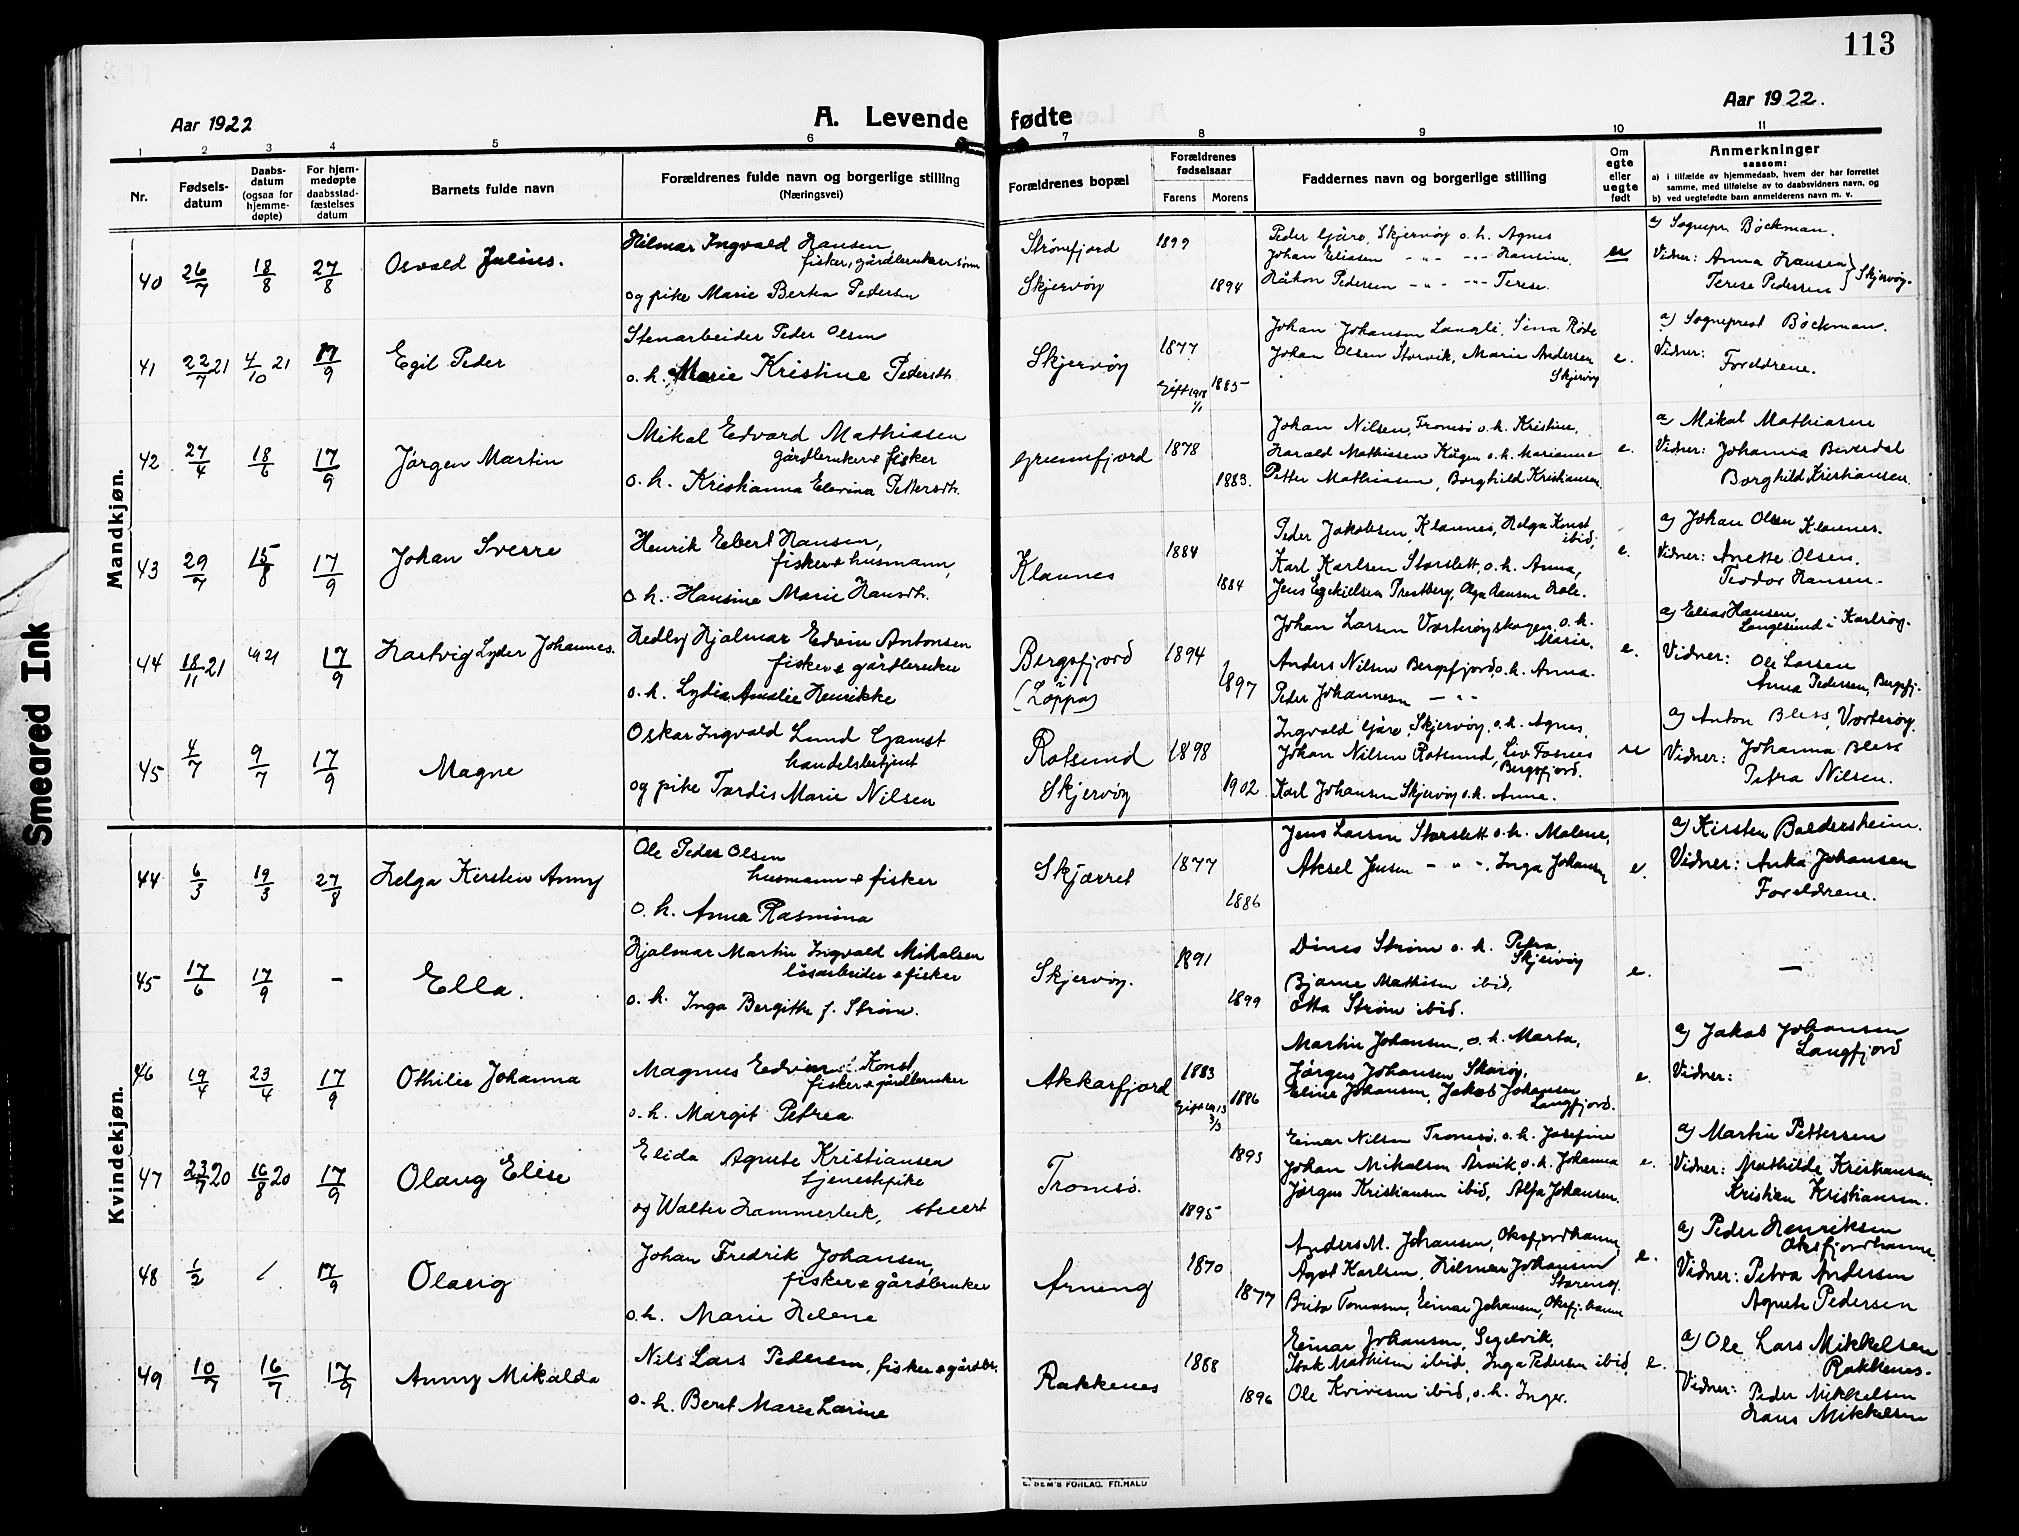 113
Aar 1922
A. Levende fødte
Aar 1922.
1 2 3 4 5 6 7 8 9 10 11
Nr.
Fødsels-
datum
Daabs-
datum
(ogsaa for
hjemme-
døpte)
For hjem-
medøpte
daabsstad-
fæstelses
datum
Barnets fulde navn
Forældrenes fulde navn og borgerlige stilling
(Næringsvei)
Forældrenes bopæl
Forældrenes
fødselsaar
Farens Morens
Faddernes navn og borgerlige stilling
Om
egte
eller
uegte
født
Anmerkninger
saasom:
a) i tilfælde av hjemmedaab, hvem der har forrettet
samme, med tilføielse av to daabsvidners navn, og
b) ved uegtefødte barn anmelderens navn m. v.
Mandkjøn.
40 26/7 18/8 27/8 Osvald Julius.
Hilmar Ingvald Hansen,
fisker, gårdbrukersønn
og pike Marie Berta Pedersen
Skjervøy
1899
1894
Peder Gjære, Skjervøy o.h. Agnes
Johan Eliasen - " - - " - Hansine,
Håkon Pedersen - " - - " - Terese.
ue
a) Sognepr. Bøckman.
Vidner: Anna Hansen
Terese Pedersen } Skjervøy.
41 22/7 21 4/10 21 17/9 Egil Peder
Stenarbeider Peder Olsen
o.h. Marie Kristine Pedersdt.
Skjervøy
1877
Gift 1918
1885
Johan Johansen Langli, Sina Røde
Johan Olsen Storvik, Marie Andersen
Skjervøy
e.
a) Sogneprest Bøckman.
Vidner:
Foreldrene.
42 27/4 18/6 17/9 Jørgen Martin
Mikal Edvard Mathiasen
gårdbruker & fisker
o.h. Kristianna Elevina Pettersdt.
Grunnfjord
1878
1883.
Johan Nilsen, Tromsø o.h. Kristine,
Harald Mathiasen Kågen o.h. Marianne
Petter Mathiasen, Borghild Kristiansen
e.
a) Mikal Mathiasen
Vidner: Johanna Beverdal
Borghild Kristiansen.
43 29/7 15/8 17/9 Johan Sverre
Henrik Ebert Hansen,
fisker & husmann,
o.h. Hansine Marie Hansdt.
Klaunes
1884
1884
Peder Jakobsen, Klaunes, Helga Konst
ibid,
Karl Karlsen Storslett, o.h. Anna,
Jens Esekielsen Prestberg, Olga Hansen
e.
a) Johan Olsen Klaunes.
Vidner: Anette Olsen.
Teodor Hansen.
44 18/11 21 21 17/9 Hartvig Lyder Johannes.
Hedly Hjalmar Edvin Antonsen
fisker & gårdbruker
o.h. Lydia Amalie Henrikke
Bergsfjord
i
(Loppa)
1894
1897
Johan Larsen Vorterøyskagen o.h.
Marie,
Anders Nilsen Bergsfjord, o.h. Anna.
Peder Johannesen - " -
e.
a) Elias Hansen
Langesund i Karlsøy.
Vidner: Ole Larsen
Anna Pedersen, Bergsfj.
45 4/7 9/7 17/9 Magne
Oskar Ingvald Lund Gamst
handelsbetjent
og pike Tordis Marie Nilsen
Rotsund
Skjervøy
1898
1902.
Ingvald Gjære, Skjervøy, o.h. Agnes,
Johan Nilsen Rotsund, Liv Fosnes
Bergsfjord.
Karl Johansen Skjervøy o.h. Anna.
ue
a) Anton Bless, Vorterøy.
Vidner: Johanna Bless
Petra Nilsen.
Kvindekjøn.
44 6/3 19/3 27/8 Helga Kirsten Anny
Ole Peder Olsen
husmann & fisker
o.h. Anna Rasmina
Skjærvel
1877
1886
Jens Larsen Storslett o.h. Malene,
Aksel Jensen - " - ". Inga Johansen
e.
a) Kirsten Baldersheim.
Vidner: Anka Johansen
Foreldrene.
45 17/6 17/9 - Ella.
Hjalmar Martin Ingvald Mikalsen
løsarbeider & fisker
o.h. Inga Bergitte f. Strøm.
Skjervøy.
1891
1899
Dines Strøm o.h. Petra
Skjervøy
Bjarne Mathisen ibid,
Otta Strøm ibid.
e.
—
46 19/4 23/4 17/9 Othilie Johanna
Magnus Edvin Konst,
fisker & gårdbruker
o.h. Margit Petrea
Akkarfjord
1883
Gift 1913
3/3
1886
Martin Johansen, o.h. Marta,
Jørgen Johansen Skarøy,
Eline Johansen, Jakob Johansen
Langfjord.
e.
a) Jakob Johansen
Langfjord
Vidner:
47 23/7 20 16/8 20 17/9 Olaug Elise
Elida Agnete Kristiansen
tjenestpike
og Walter Hammerbeck, stuert
Tromsø.
1893
1895
Einar Nilsen Tromsø, o.h. Josefine
Johan Mikalsen Årvik, o.h. Johanna
Jørgen Kristiansen ibid, Alfa Johansen.
e.
a) Martin Pettersen
Vidner: Mathilde Kristiansen
Kristian Kristiansen.
48 1/2 / 17/9 Olaug
Johan Fredrik Johansen,
fisker & gårdbruker
o.h. Marie Helene
Arneng
1870
1877
Anders M. Johansen, Oksfjordhamn,
Agot Karlsen, Hilmar Johansen
Storeng.
Brita Tomasen, Einar Johansen, Oksfj.hamn
e.
a) Peder Henriksen
Oksfjordhamn
Vidner: Petra Andersen
Agnete Pedersen
49 10/7 16/7 17/9 Anny Mikalda
Nils Lars Pedersen, fisker & gårdbr.
o.h. Beret Marie Larine
Rakkenes
1888
1896
Einar Johansen, Segelvik,
Isak Mathisen ibid, Inga Pedersen ibid,
Ole Kvivesen ibid, o.h. Inger.
e.
a) Ole Lars Mikkelsen
Rakkenes.
Vidner: Peder Mikkelsen
Hans Mikkelsen
E. SEM'S FORLAG. FR.HALD
Smeared Ink